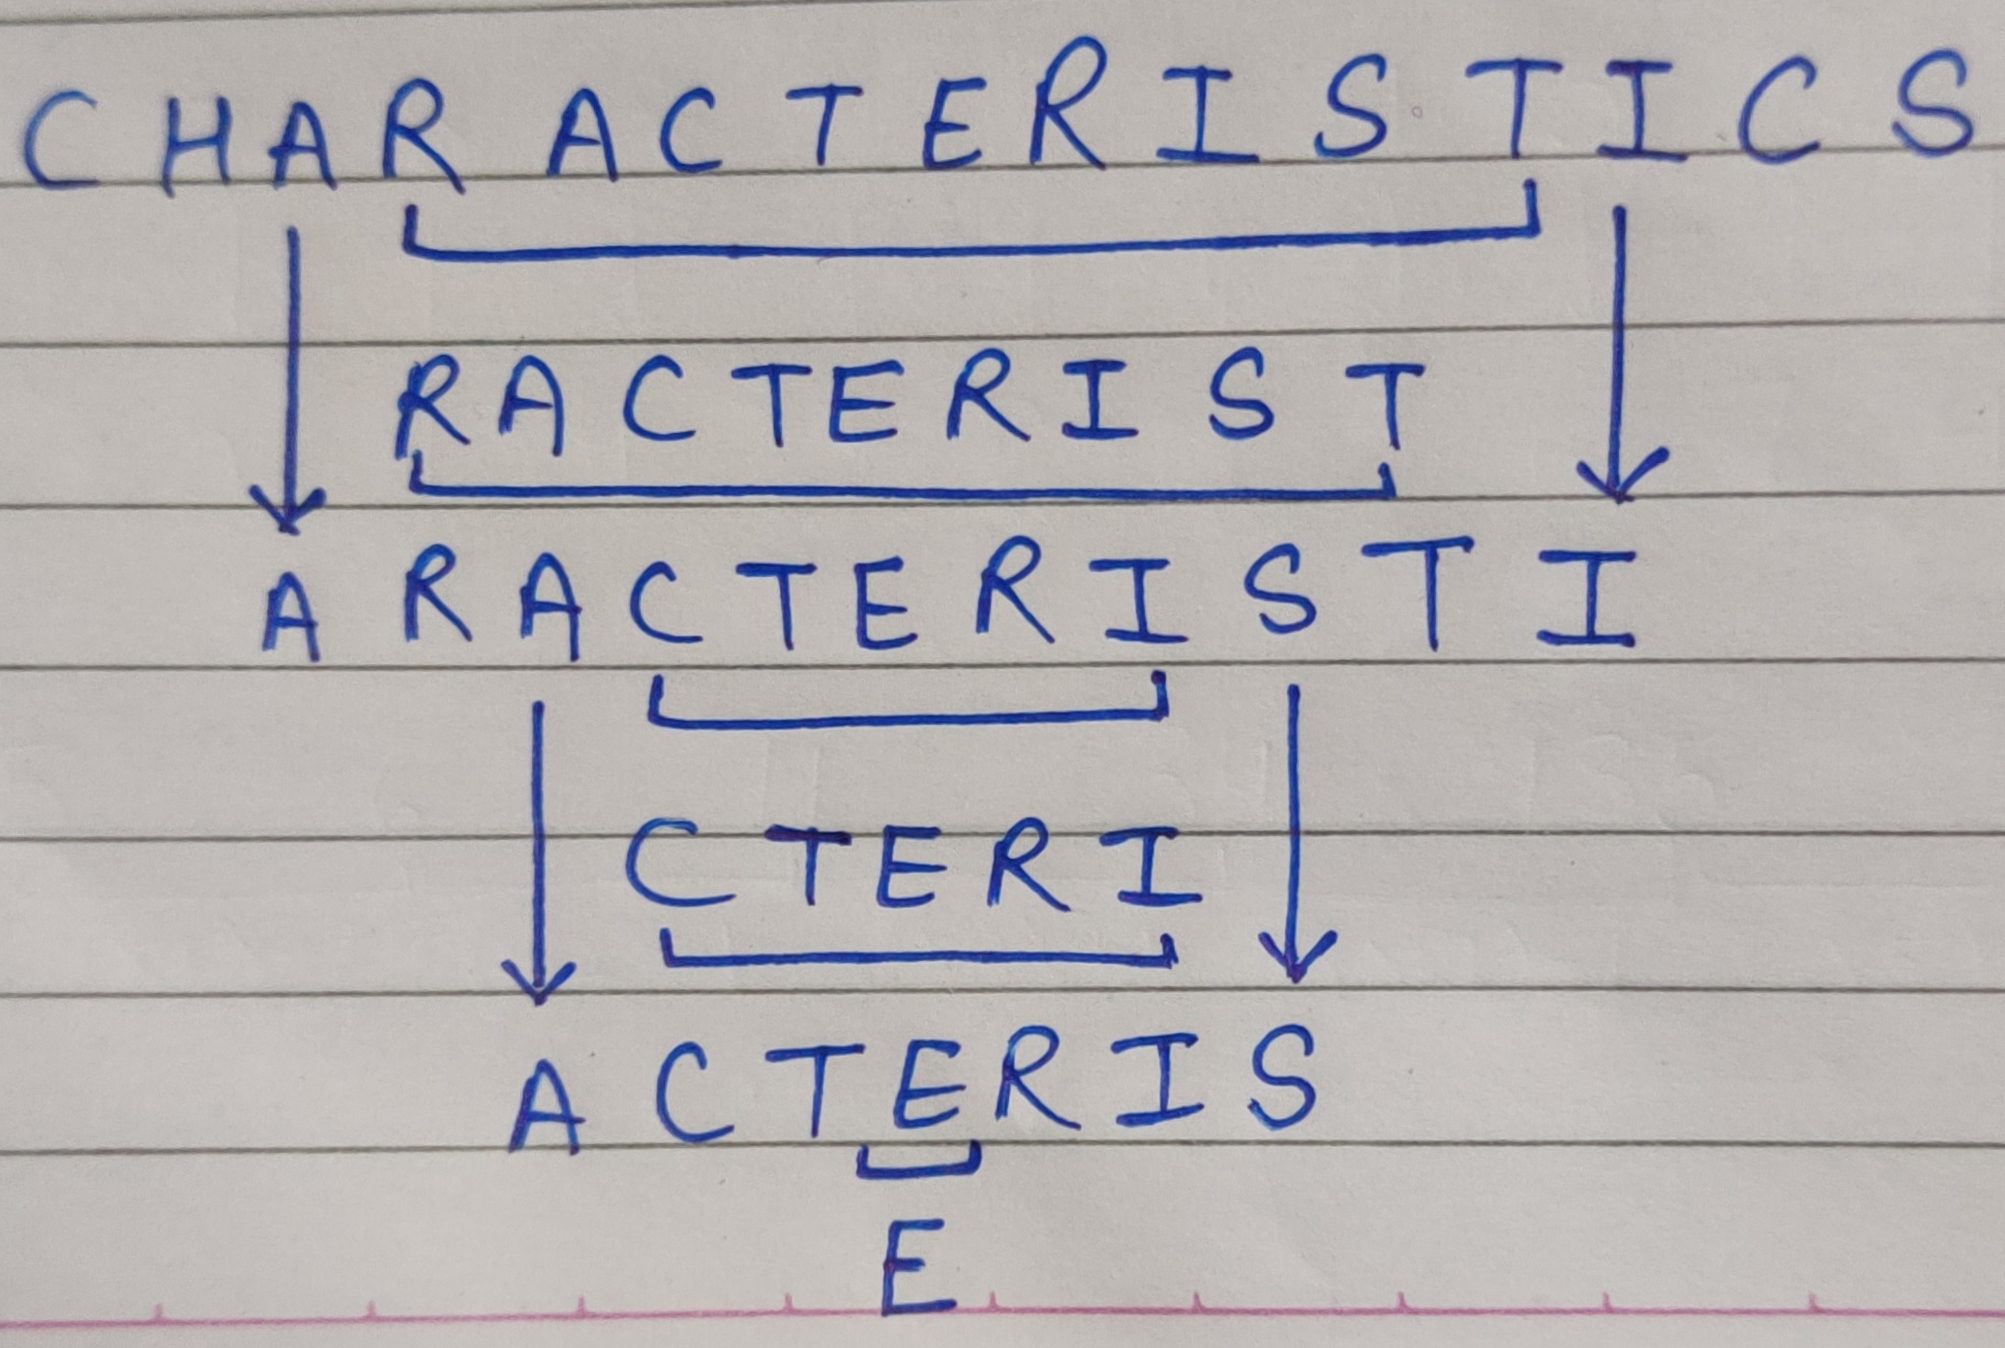 CHARACTERISTICS
RACTERIST
ARACTERISTI
CTERI
ACTERIS
E